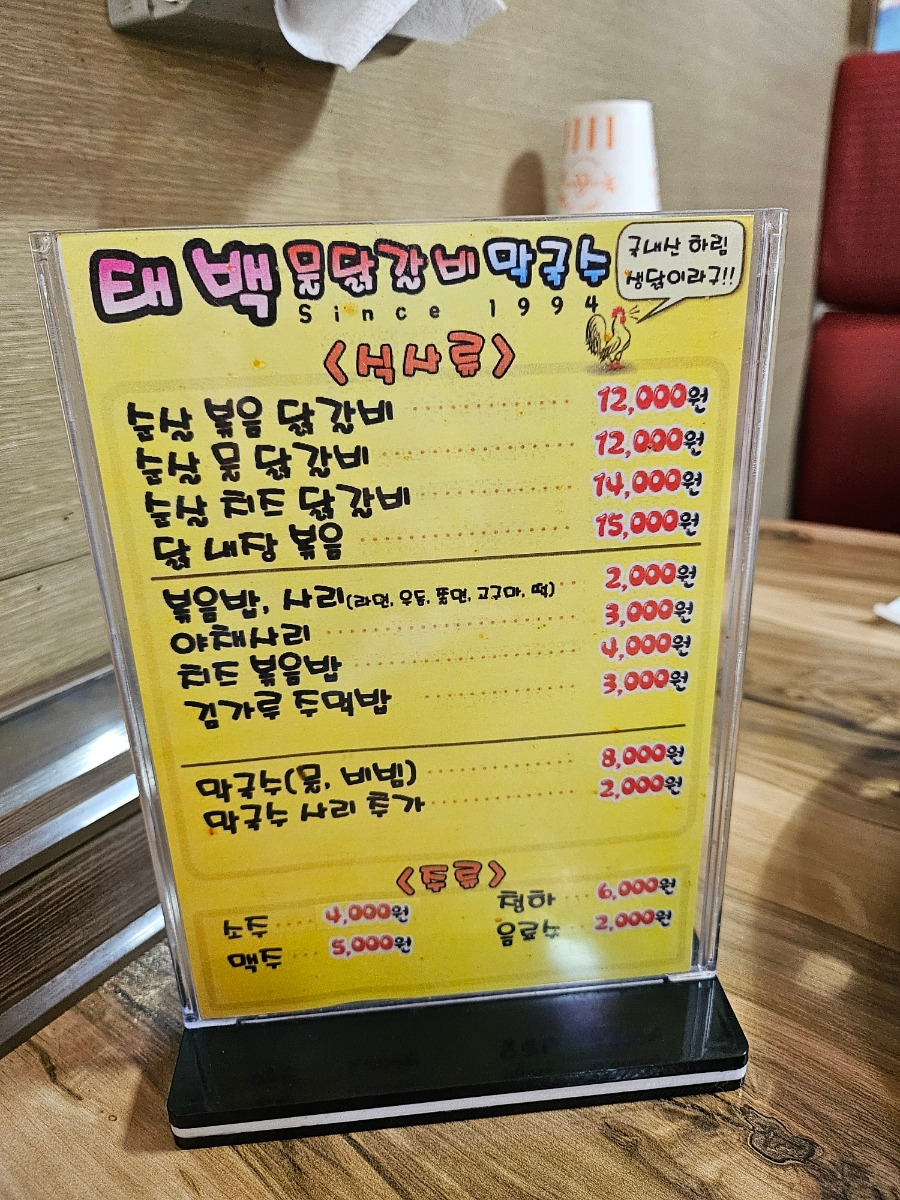 태백 물닭갈비 막국수
Since 1994
국내산 하림
생닭이라구!!
<식사류>
순살 볶음 닭갈비 12,000원
순살 물 닭갈비 12,000원
순살 치즈 닭갈비 14,000원
닭 내장 볶음 15,000원
볶음밥, 사리(라면, 우동, 쫄면, 고구마, 떡) 2,000원
야채사리 3,000원
치즈 볶음밥 4,000원
김가루 주먹밥 3,000원
막국수(물, 비빔) 8,000원
막국수 사리 추가 2,000원
<주류>
소주 4,000원 청하 6,000원
맥주 5,000원 음료수 2,000원